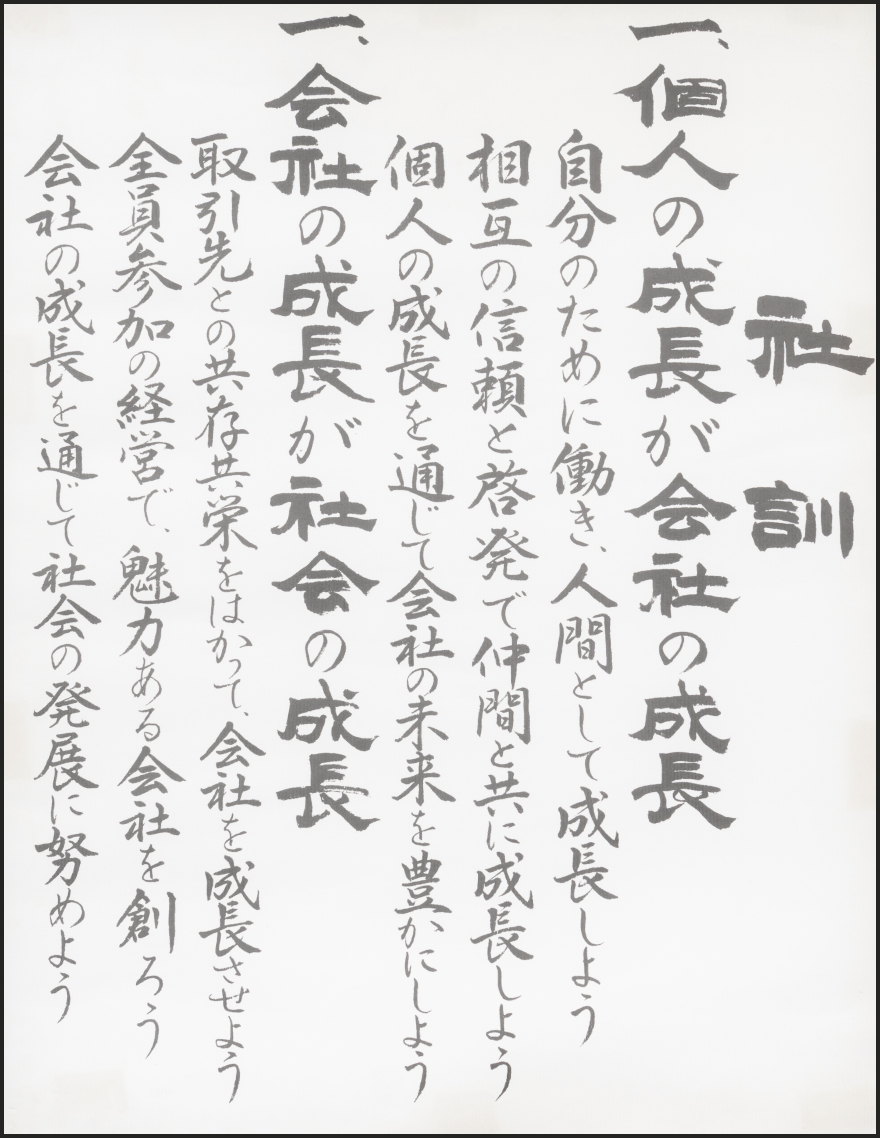 社訓
一、個人の成長が会社の成長
自分のために働き、人間として成長しよう
相互の信頼と啓発で仲間と共に成長しよう
個人の成長を通じて会社の未来を豊かにしよう
一、会社の成長が社会の成長
取引先との共存共栄をはかって、会社を成長させよう
全員参加の経営で、魅力ある会社を創ろう
会社の成長を通じて社会の発展に努めよう